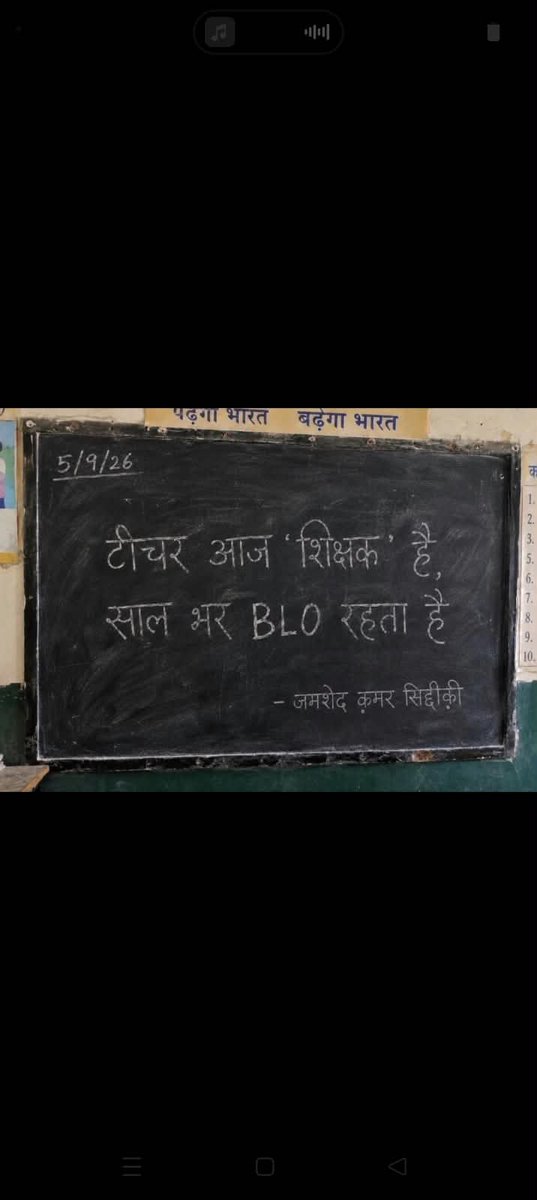 पढ़ेगा भारत बढ़ेगा भारत
5/9/26
टीचर आज 'शिक्षक' है,
साल भर BLO रहता है
- जमशेद क़मर सिद्दीक़ी
क
1.
2.
3.
5.
6.
7.
8.
9.
10.